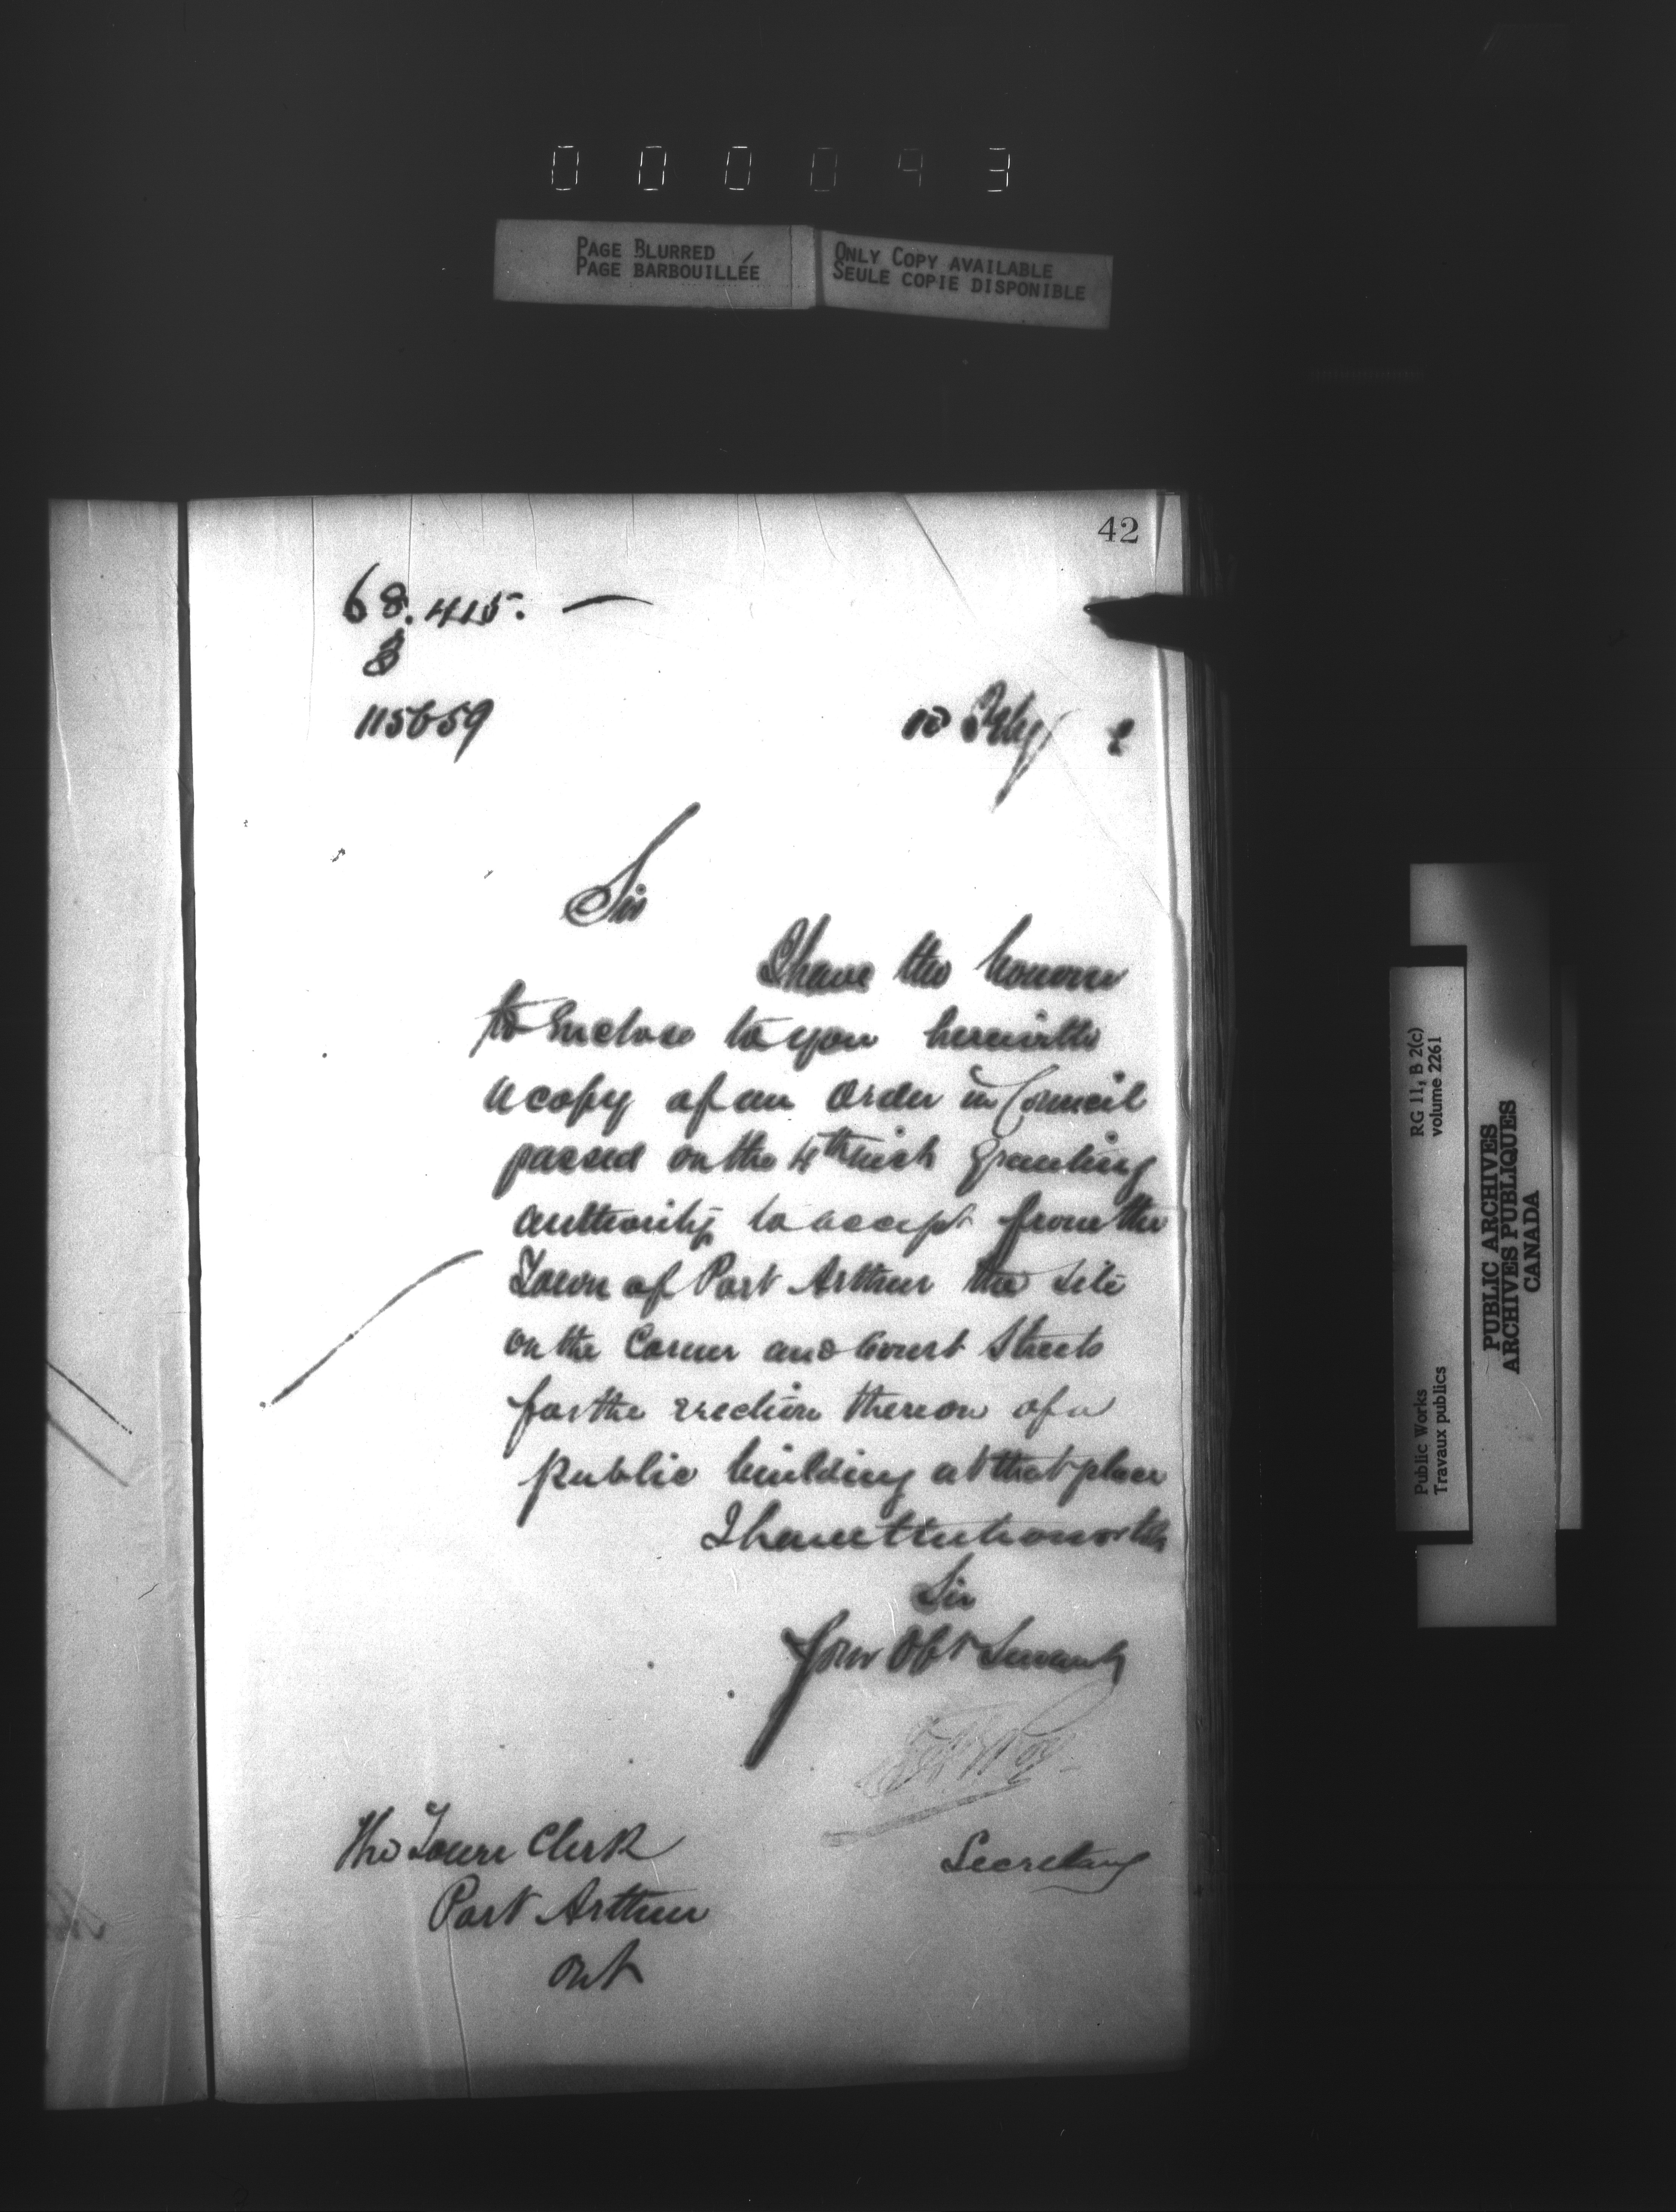 000043
PAGE BLURRED
PAGE BARBOUILLÉE
ONLY COPY AVAILABLE
SEULE COPIE DISPONIBLE
42
68.415.
115659
10 Feby 2
Sir
I have the honour
to Enclose to you herewith
a copy of an Order in Council
passed on the 4th inst Granting
authority to accept from the
Town of Port Arthur the site
on the Corner and Court Streets
for the erection thereon of a
public building at that place
I have the honor to be
Sir
Your Obt Servant
Secretary
The Town Clerk
Port Arthur
Ont
RG 11, B 2(c)
volume 2261
Public Works
Travaux publics
PUBLIC ARCHIVES
ARCHIVES PUBLIQUES
CANADA